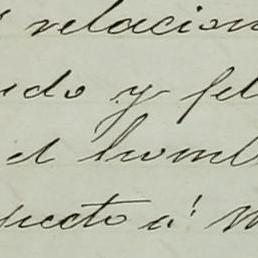 relacion
ido y fel
el homb
pecto á m